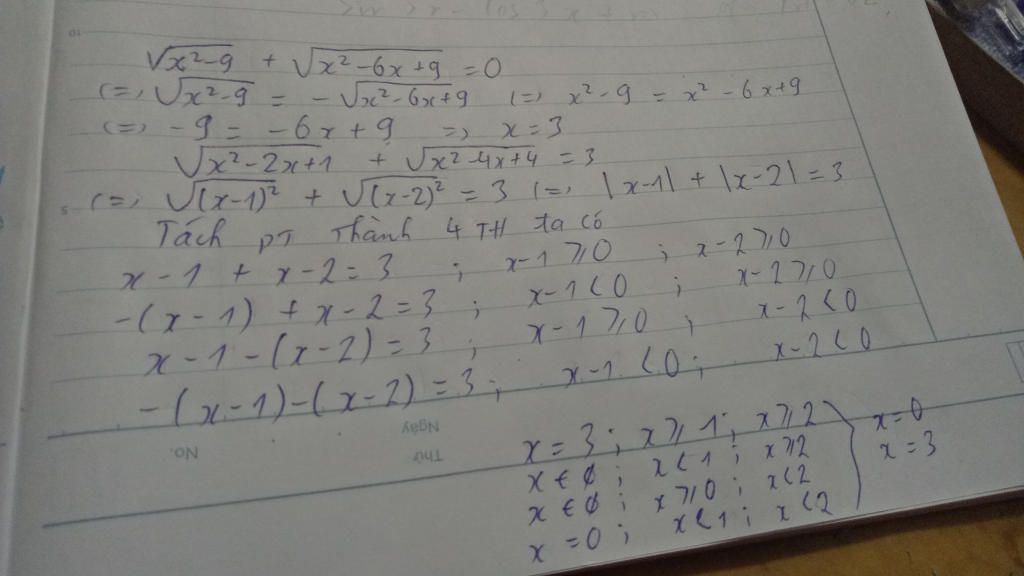 √x²-9 + √x²-6x+9 = 0
(=) √x²-9 = -√x²-6x+9 (=) x²-9 = x²-6x+9
(=) -9 = -6x+9 =) x=3
√x²-2x+1 + √x²-4x+4 = 3
(=) √(x-1)² + √(x-2)² = 3 (=) |x-1| + |x-2| = 3
Tách pt thành 4 TH ta có
x-1 + x-2 = 3 ; x-1 ⩾ 0 ; x-2 ⩾ 0
-(x-1) + x-2 = 3 ; x-1 < 0 ; x-2 ⩾ 0
x-1-(x-2) = 3 ; x-1 ⩾ 0 ; x-2 < 0
-(x-1)-(x-2) = 3 ; x-1 < 0 ; x-2 < 0
x = 3 ; x ⩾ 1 ; x ⩾ 2
x ∈ ∅ ; x < 1 ; x ⩾ 2
x ∈ ∅ ; x ⩾ 0 ; x < 2
x = 0 ; x < 1 ; x < 2
x = 0
x = 3
Ngày
Thứ
No.